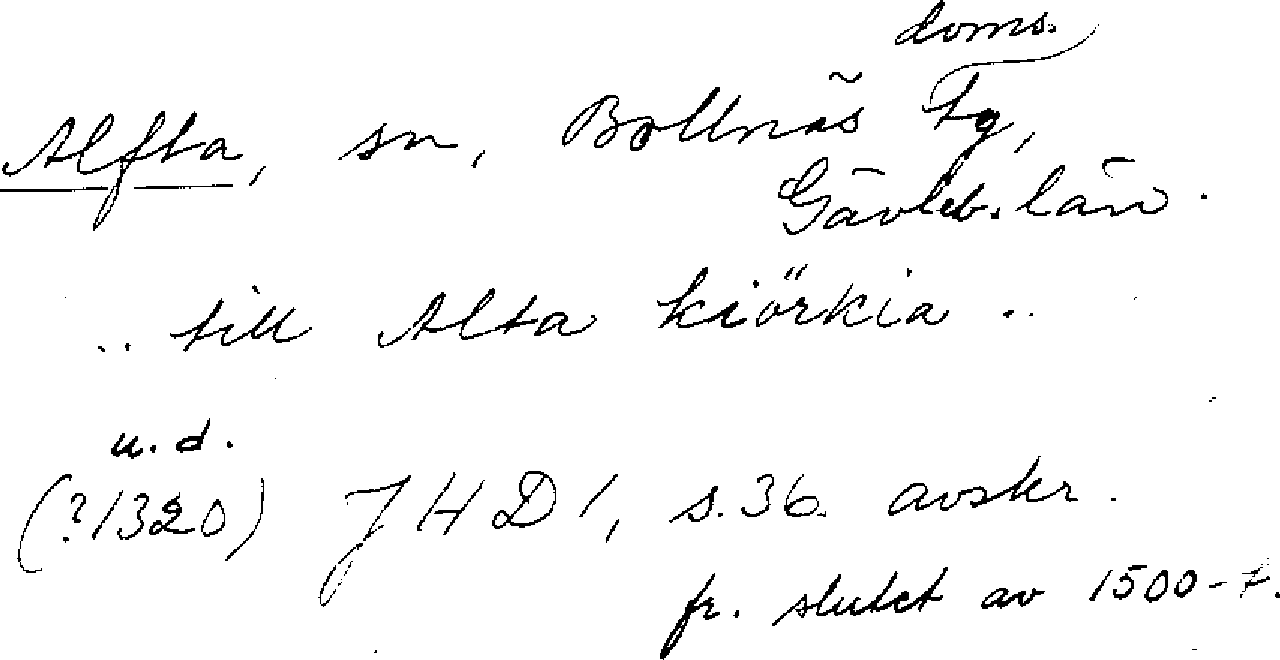 doms.
Alfta, sn, Bollnäs tg,
Gävleb. län.
.. till Alta kiörkia ..
u. d.
(?1320) JHD 1, s. 36. avskr.
fr. slutet av 1500-t.